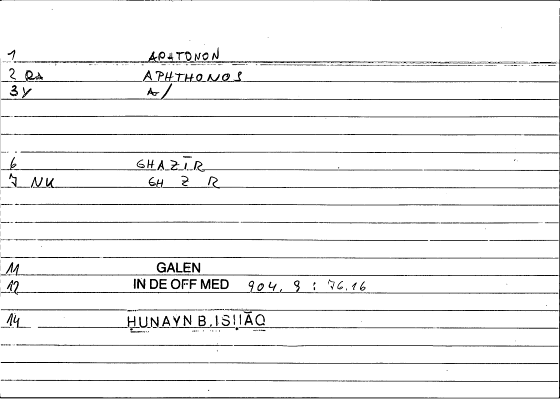 1 APHTONON
2 Da APHTHONOS
3 y A/
6 GHAZĪR
7 NK GH Z R
11 GALEN
12 IN DE OFF MED 904, 9 : 76.16
14 HUNAYN B. ISḤĀQ